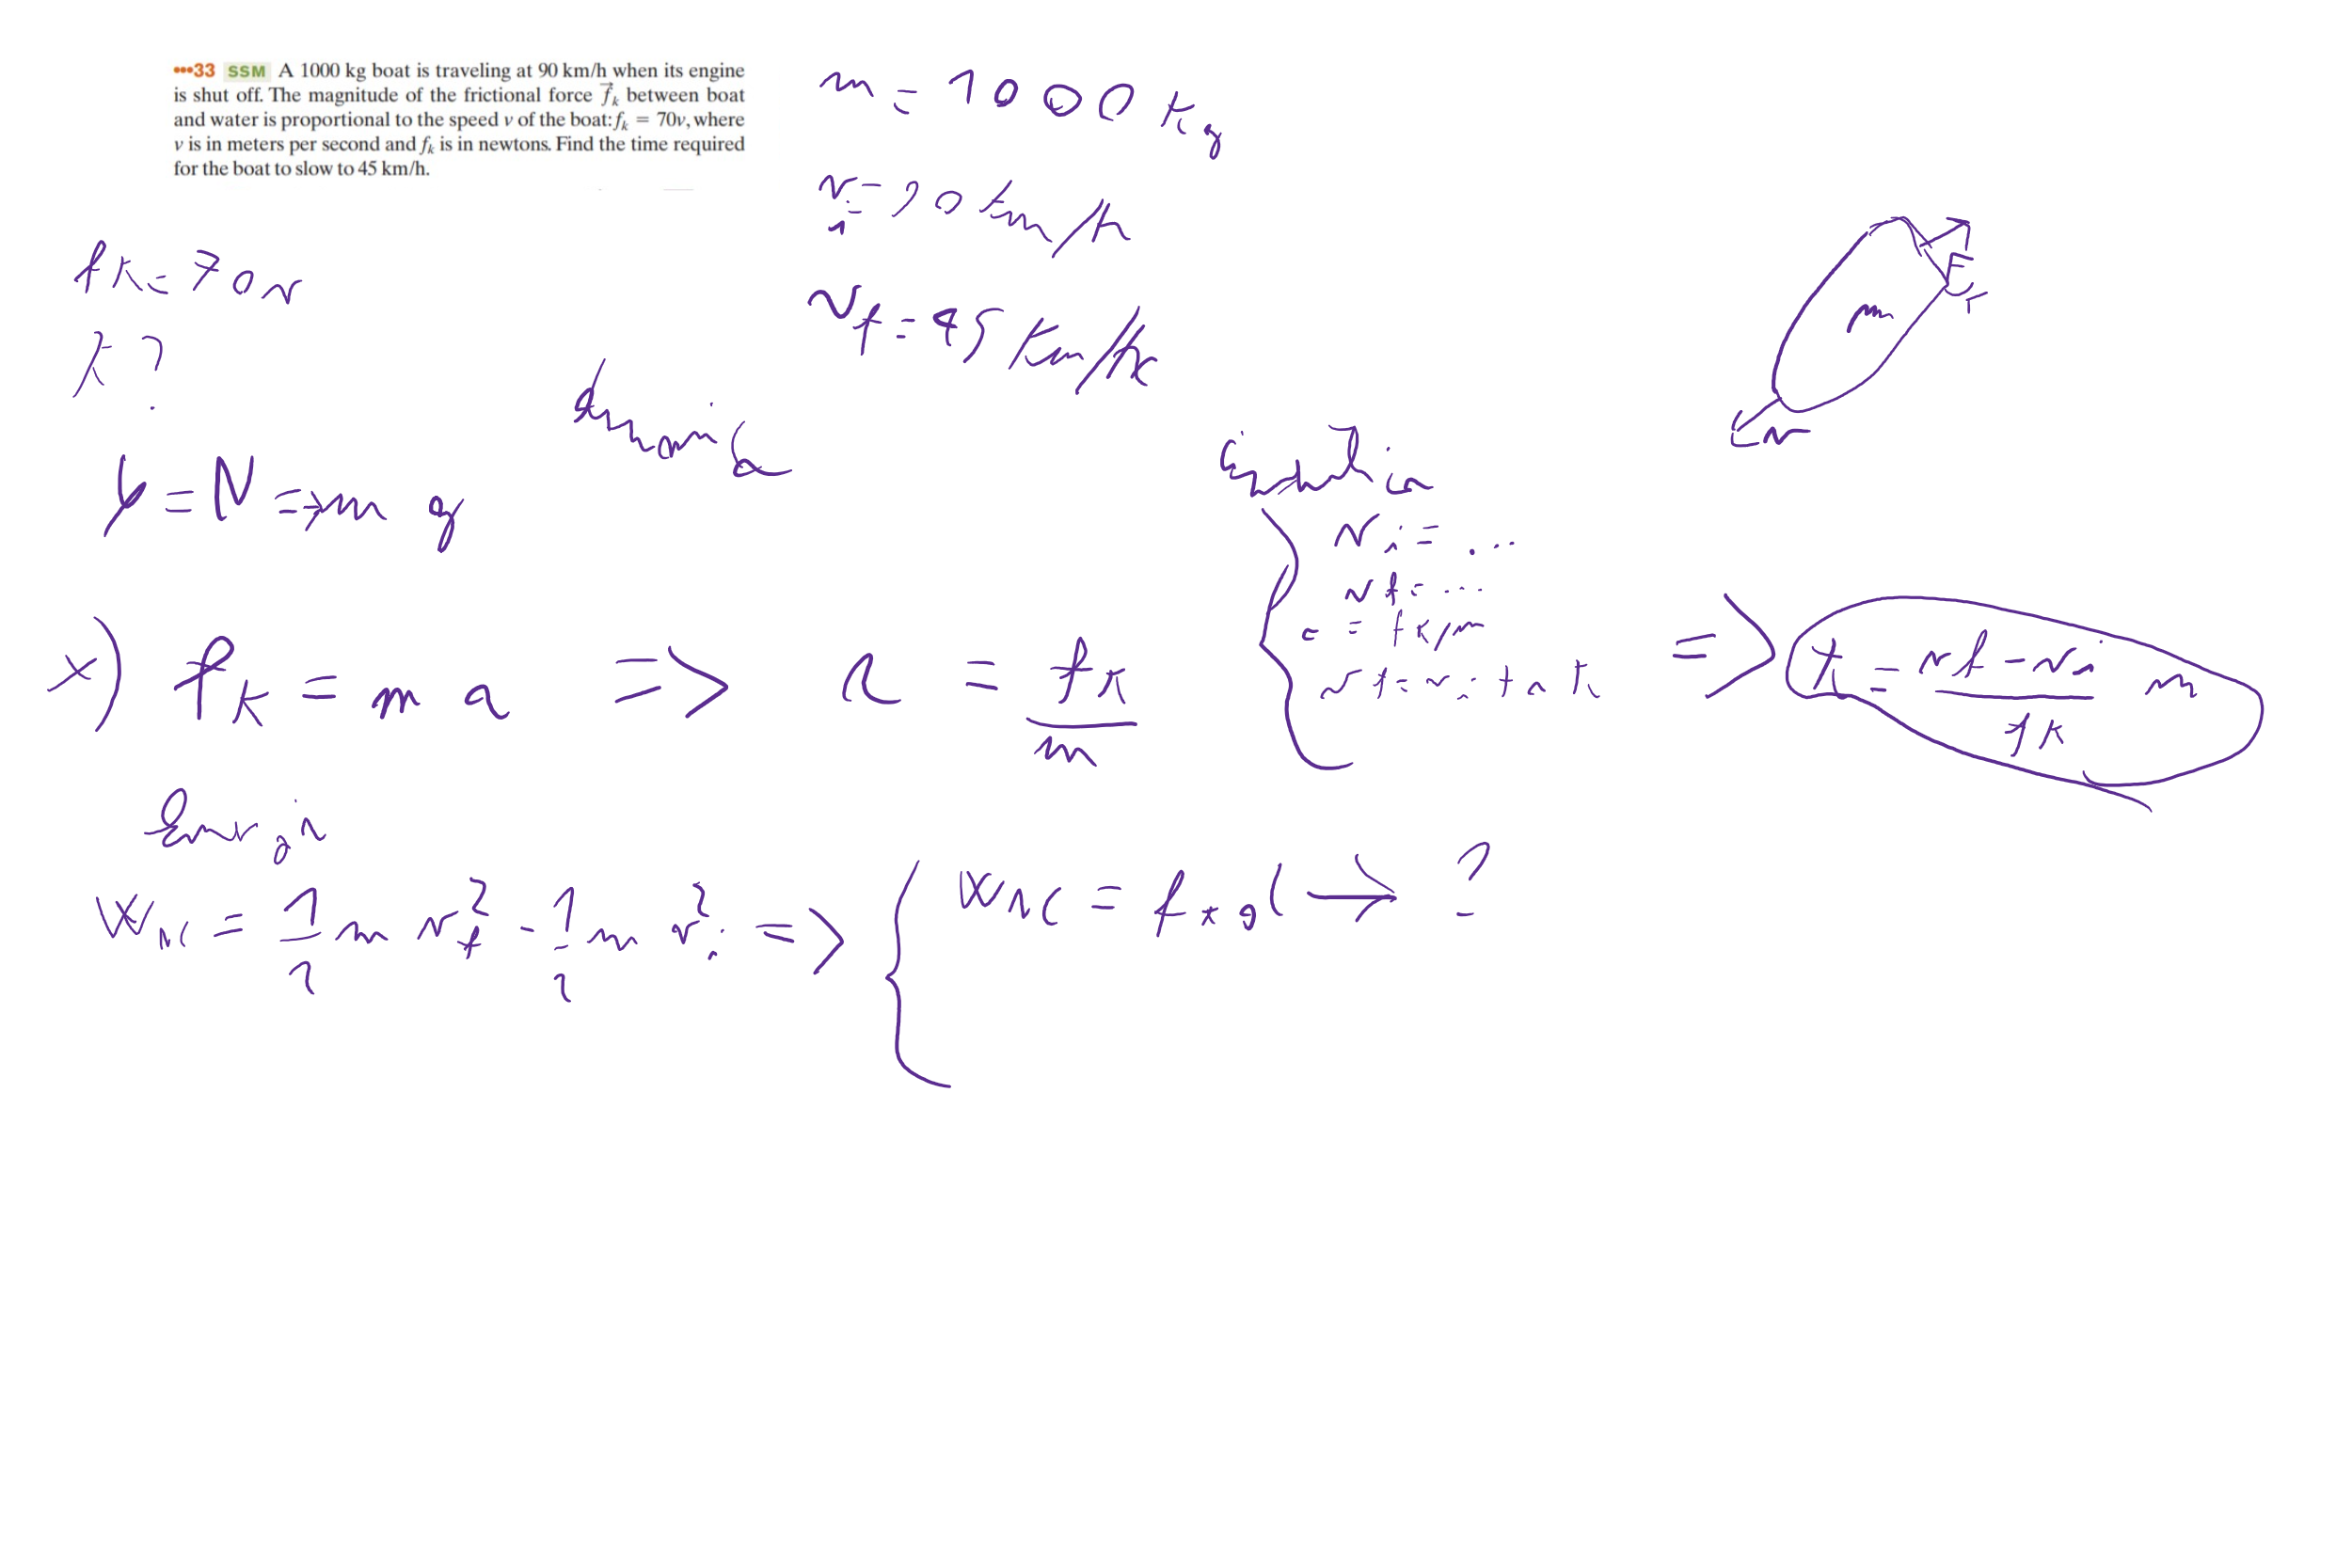 •••33 SSM A 1000 kg boat is traveling at 90 km/h when its engine
is shut off. The magnitude of the frictional force f⃗k between boat
and water is proportional to the speed v of the boat: fk = 70v, where
v is in meters per second and fk is in newtons. Find the time required
for the boat to slow to 45 km/h.
m = 1000 kg
vi = 90 km/h
vf = 45 km/h
fk = 70v
t ?
m
v
y = N = m g
vi = ...
vf = ...
= fk/m
vf = vi + a t
x) fk = m a => a = fk/m
=> t = (vf - vi)/fk m
WNC = 1/2 m vf² - 1/2 m vi² => { WNC = fx d → ?